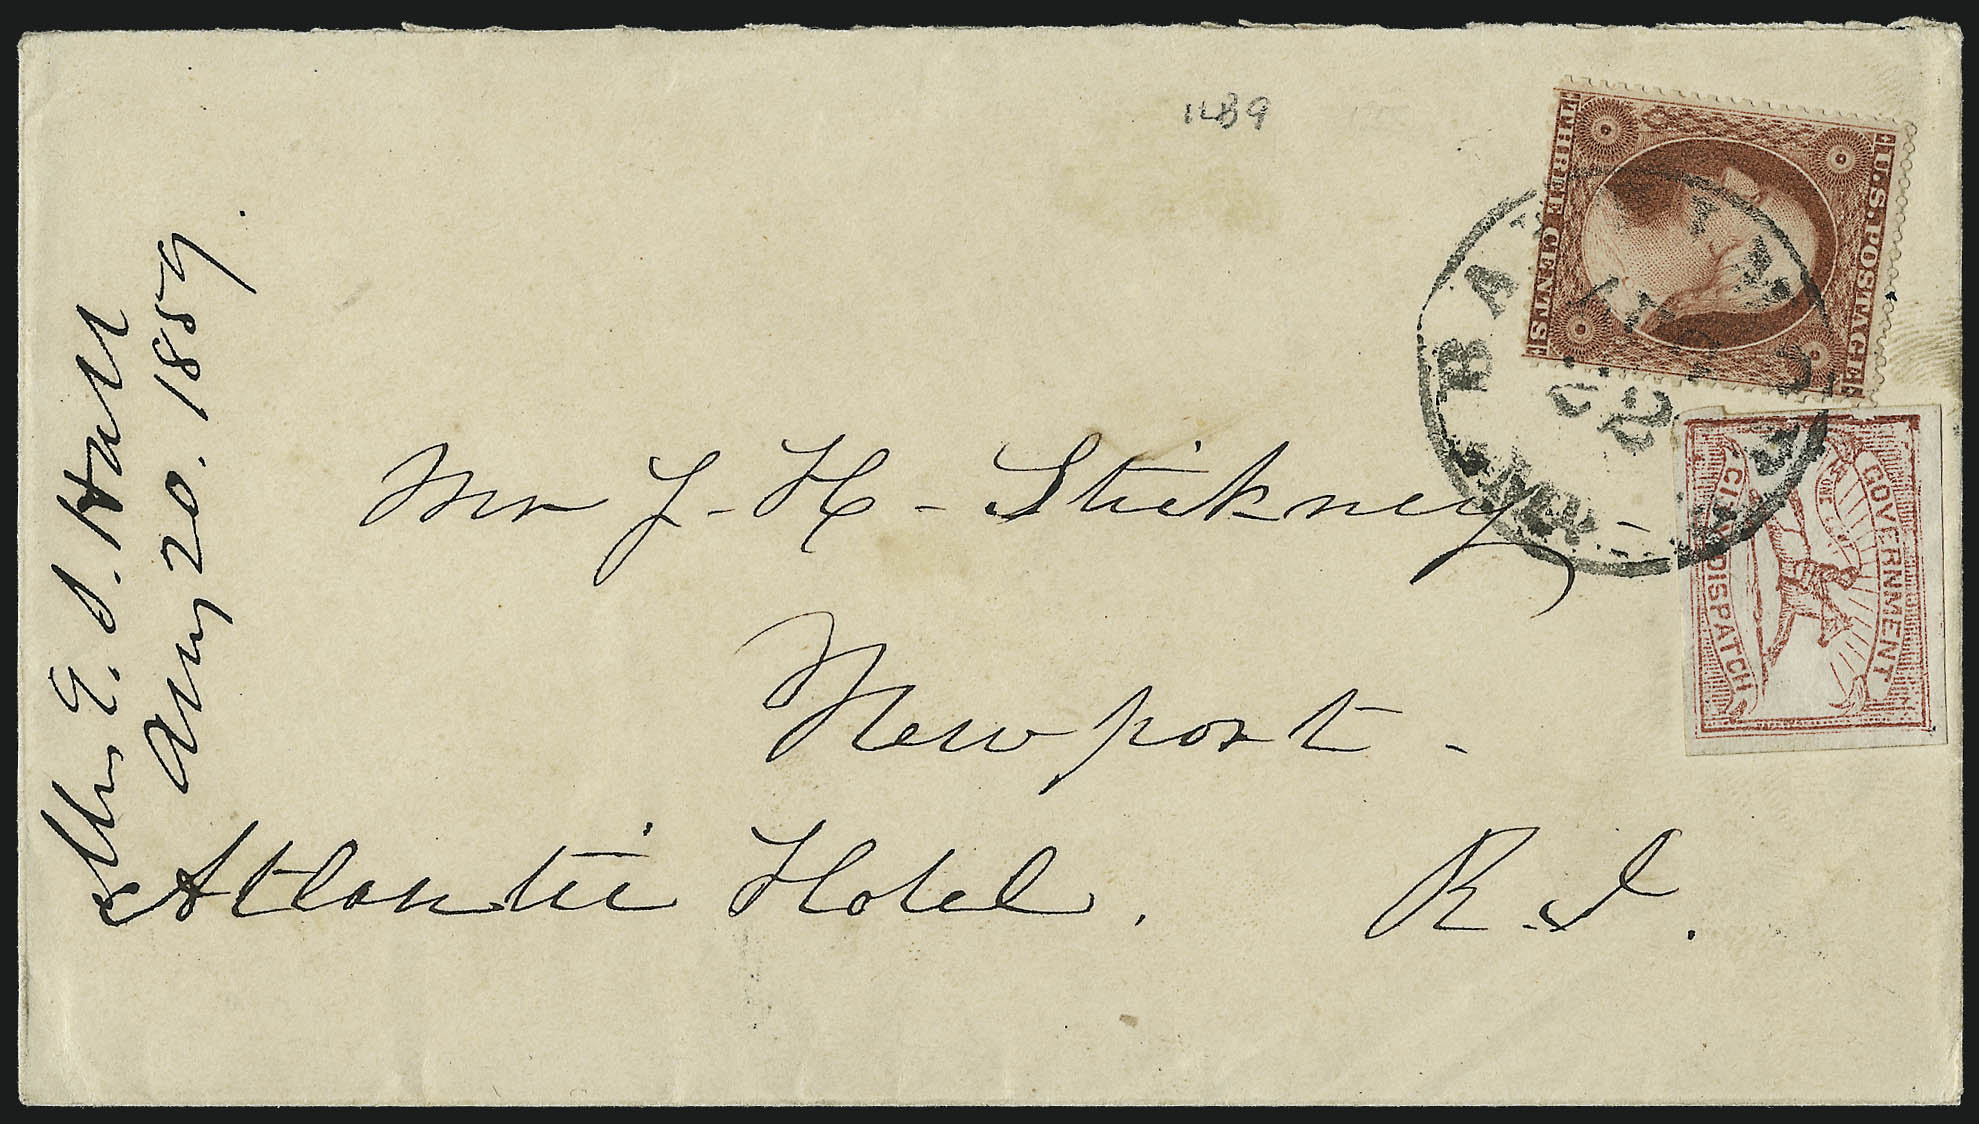 1LB9
U.S. POSTAGE
THREE CENTS
GOVERNMENT
ONE CENT
CITY DISPATCH
Mrs E. S. Hall
Aug 20. 1859.
Mr J - H - Stickney -
Newport -
Atlantic Hotel. R. I.